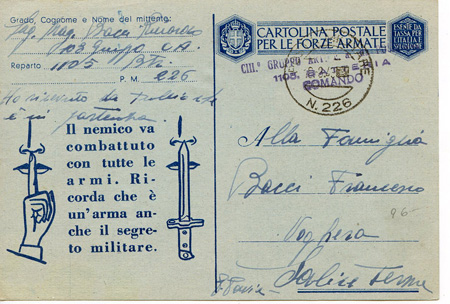 Grado, Cognome e Nome del mittente:
Serg. Magg. Bacci Francesco
103 Gruppo C.A.
Reparto 1105 Btr.
P. M. 226
Ho ricevuto da
è in partenza.
Il nemico va
combattuto
con tutte le
armi. Ri-
corda che è
un'arma an-
che il segre-
to militare.
CARTOLINA POSTALE
PER LE FORZE ARMATE
ESENTE DA
TASSA PER
L'ITALIA E
CIII° GRUPPO ART.
1105
COMANDO
N. 226
Alla Famiglia
Bacci Francesco
96-
Voghera
Salice Terme
P. Pavia